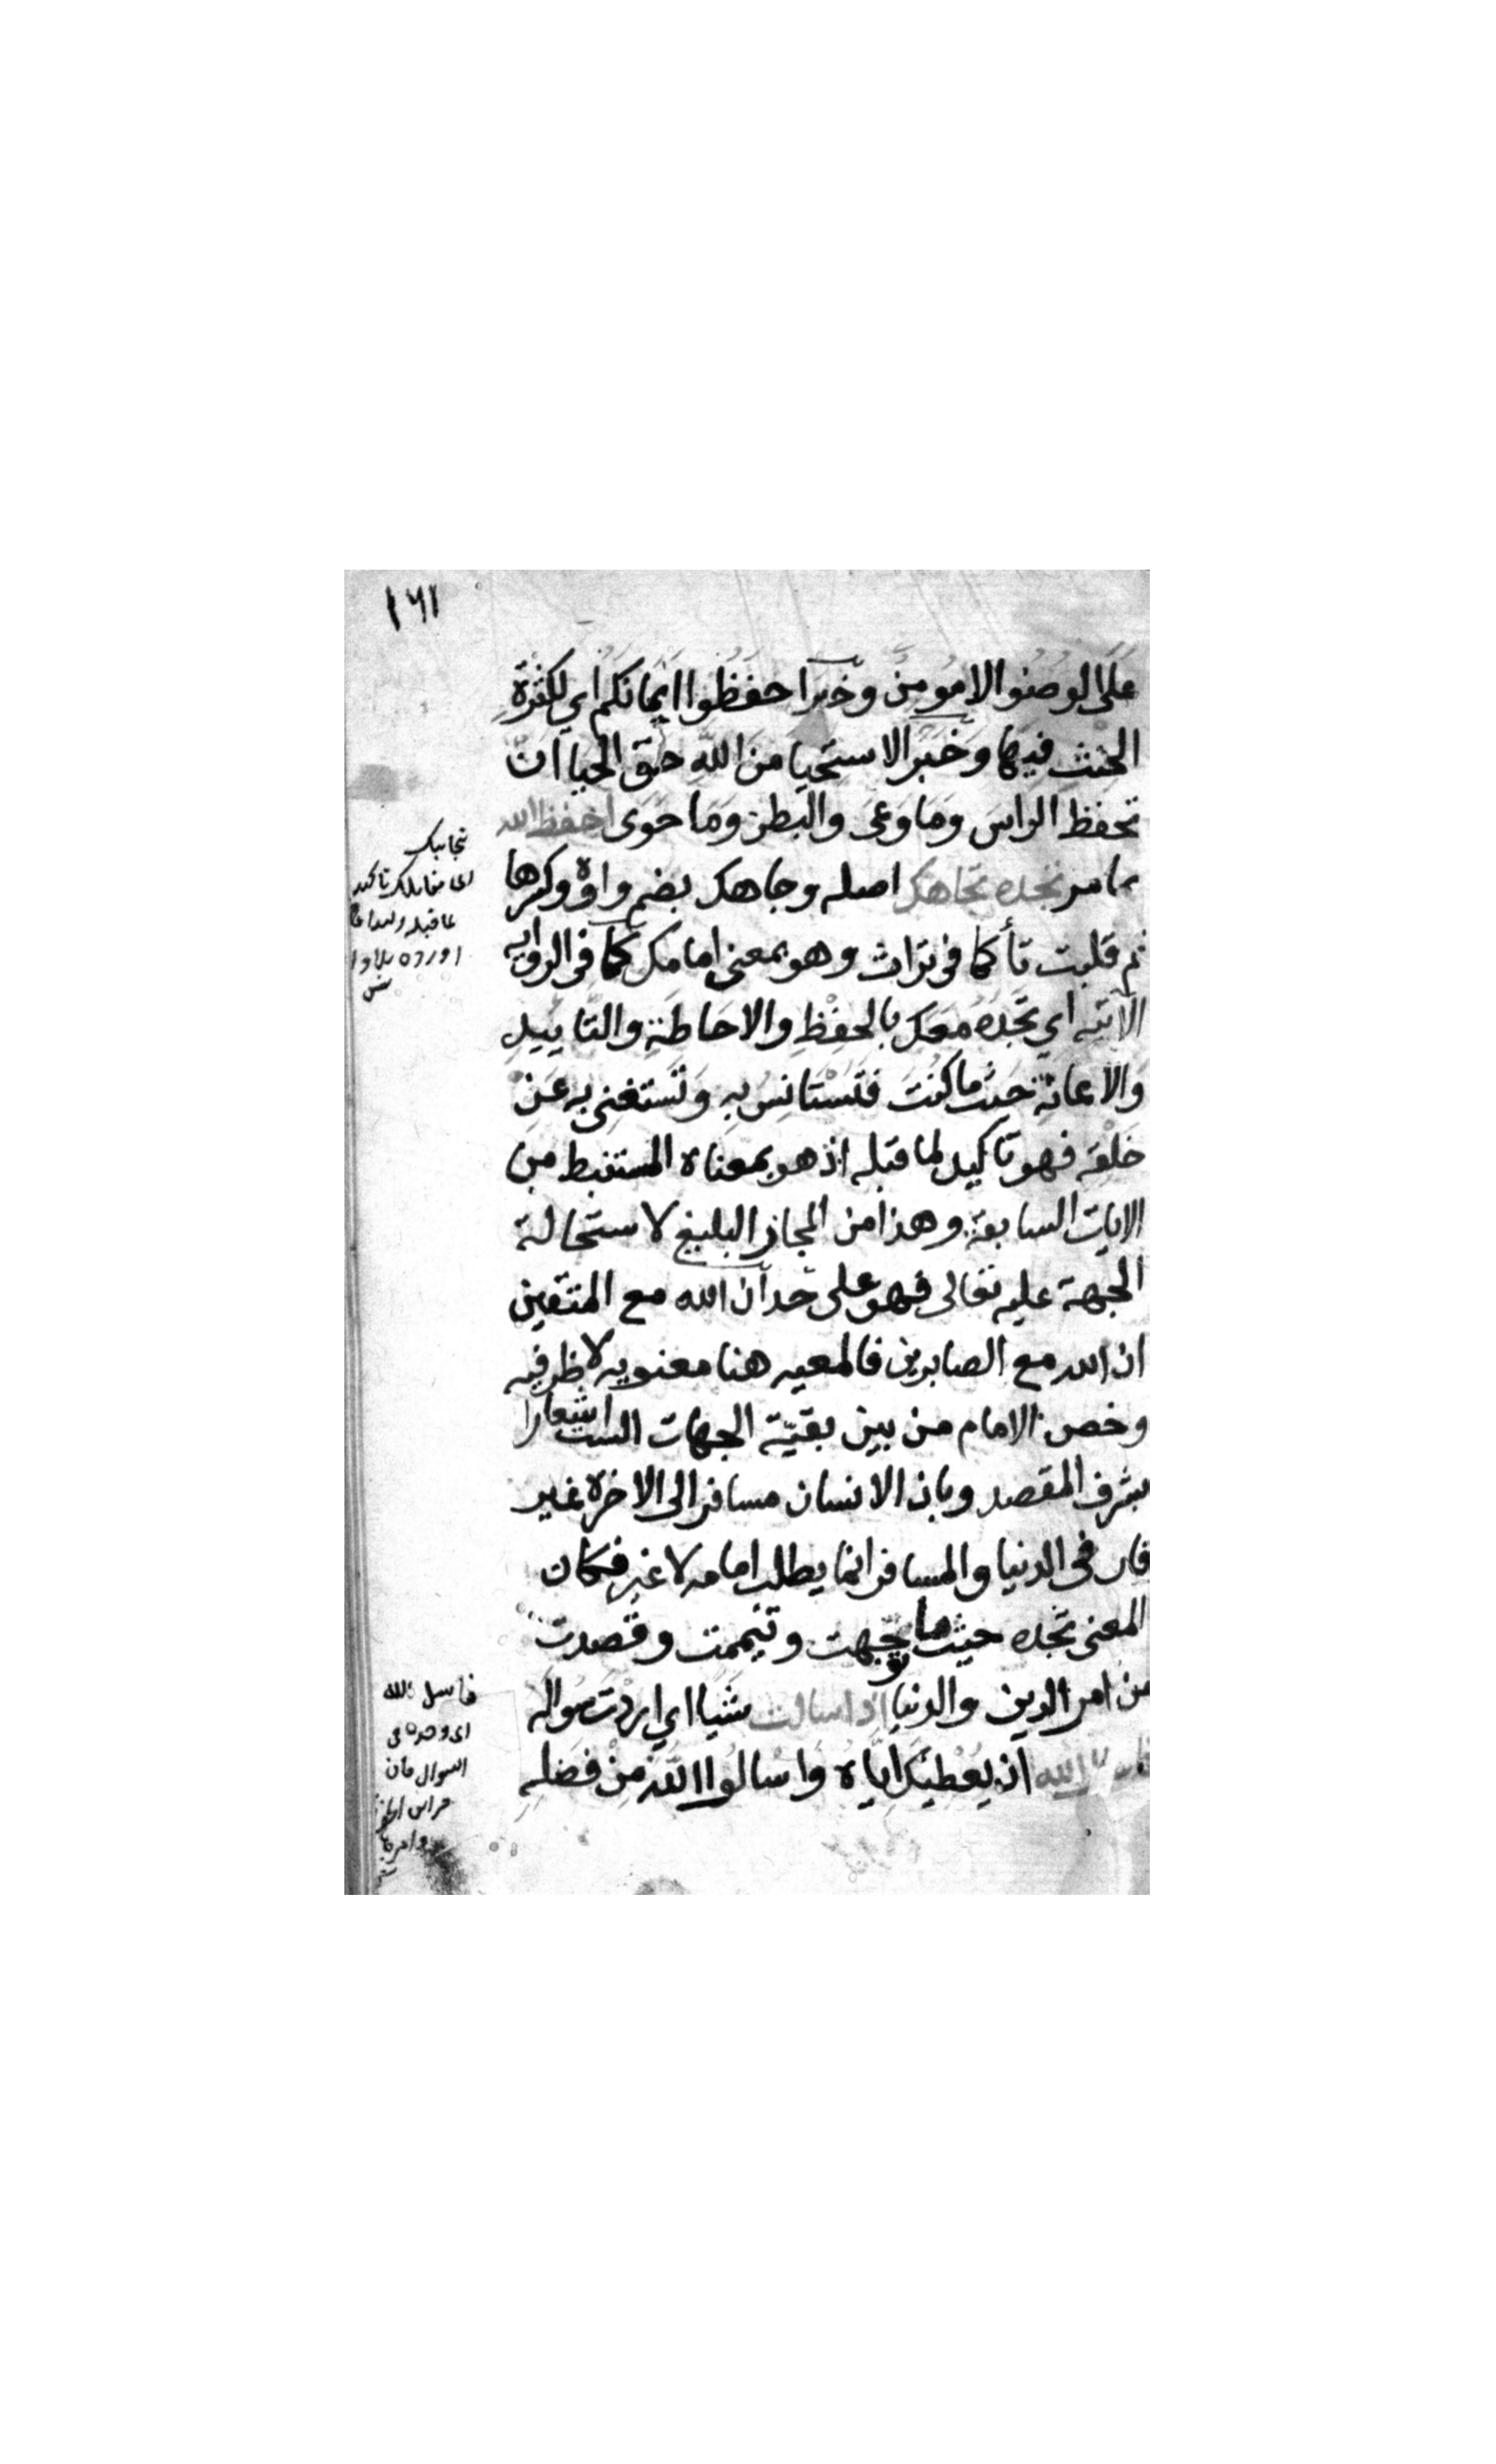 ١٦١
على الوضنوا الا مومن وخبر احفظوا ايمانكم اي لكثرة
الحنث فيها وخبر الاستحيا من الله حق الحيا ان
تحفظ الراس وما وعى والبطن وما حوى احفظ الله
بما مر تجده تجاهك اصله وجاهك بضم واوه وكسرها
ثم قلبت تأ كما في تراث وهو بمعنى امامك كما في الرواية
الآتيه اي تجده معك بالحفظ والاحاطة والتاييد
والاعانة حيث ما كنت فتستانس به وتستغني به عن
خلقه فهو تاكيد لما قبله اذ هو بمعناه المستنبط من
الايات السابقة وهذا من المجاز البليغ لاستحالة
الجهة عليه تعالى فهو على حد ان الله مع المتقين
ان الله مع الصابرين فالمعيه هنا معنويه لا ظرفيه
وخص الامام من بين بقية الجهات الست اشعارا
بشرف المقصد وبان الانسان مسافر الى الاخرة غير
قار في الدنيا والمسافر انما يطلب امامه لا غير فكان
المعنى تجده حيث ما توجهت وتيممت وقصدت
من امر الدين والدنيا اذا سالت شيا اي اردت سواله
فاسال الله ان يعطيك اياه واسالوا الله من فضله
تجاهك
اى مقابلك تاكيد
لما قبله
اورده
فاسل الله
اى وحده فى
السوال فان